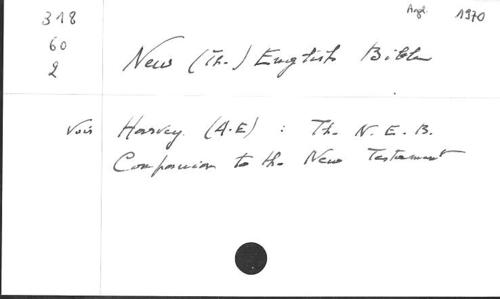 318
60
2
Angl. 1970
New (Th.) English Bible
Voir Harvey (A.E) : The N.E.B.
Companion to the New Testament